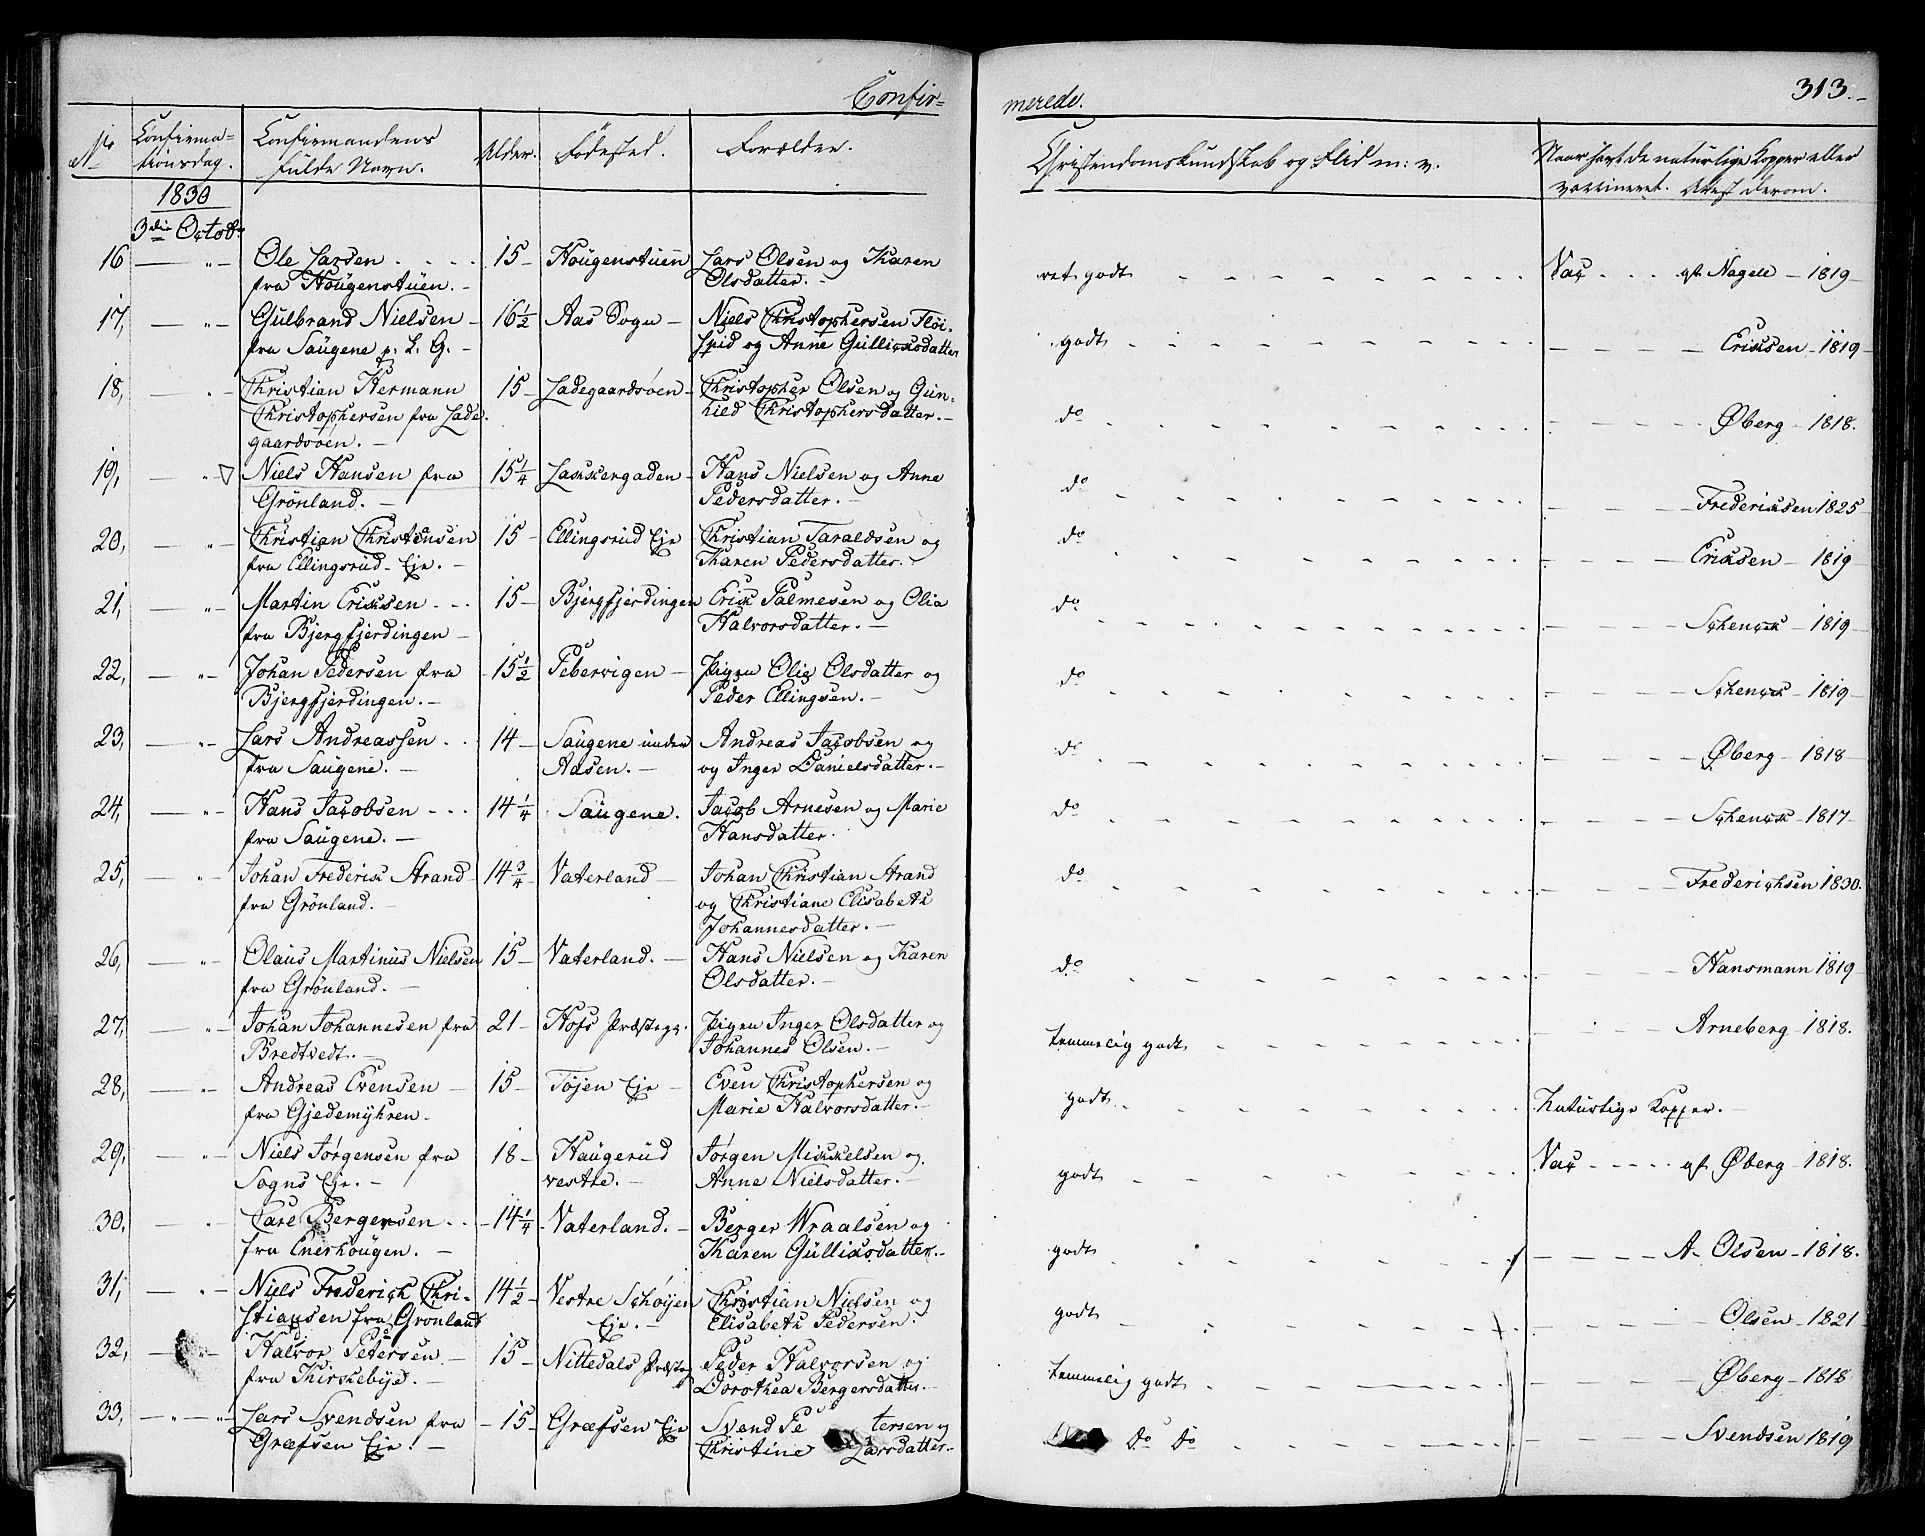 Confir=
merede.
313.-
No Confirma= Confirmandens Alder. Födested. Forældre. Christendomskundskab og Flid m: v. Naar havt de naturlige Kopper eller
tionsdag. fulde Navn. vaccineret. Attest derom.
1830
3die Octob:
16 — " — Ole Larsen 15 — Hougenstuen Lars Olsen og Karen ret godt Vac af Nagel — 1819
fra Hougenstuen. — Olsdatter. —
17, — " — Gulbrand Nielsen — 16 1/2 Aas Sogn — Niels Christophersen Flöi= godt Ericksen — 1819
fra Saugene p. L. G. — spid og Anne Gullicksdatter
18, — " Christian Hermann 15 — Ladegaardsöen — Christopher Olsen og Gun= do Øberg — 1818.
Christophersen fra Lade= hild Christophersdatter. —
gaardsöen. —
19, — " Niels Hansen fra 15 1/4 Lakkergaden — Hans Nielsen og Anne do Fredericksen 1825
Grönland. — Pedersdatter. —
20, — " Christian Christensen 15 — Ellingsrud Eje Christian Taraldsen og do Ericksen — 1819
fra Ellingsrud Eje. — Karen Pedersdatter. —
21, — " Martin Ericksen 15 — Bjergfjerdingen Erick Palmesen og Olia do Schenck — 1819
fra Bjergfjerdingen — Halvorsdatter. —
22, — " — Johan Pedersen fra 15 1/2 Pebervigen — Pigen Olia Olsdatter og do Schenck — 1819
Bjergfjerdingen. — Peder Ellingsen. —
23, — " — Lars Andreassen 14 — Saugene under Andreas Jacobsen og do Øberg — 1818
fra Saugene. — Aasen. — og Inger Danielsdatter. —
24, — " — Hans Jacobsen 14 1/4 Saugene. Jacob Arnesen og Marie do Schenck — 1817
fra Saugene. — Hansdatter.
25, — " — Johan Frederik Strand 14 3/4 Vaterland — Johan Christian Strand do Frederichsen 1830.
fra Grönland. — og Christiane Elisabeth
Johannesdatter. —
26, — " — Olaus Martinus Nielsen 15 — Vaterland. — Hans Nielsen og Karen do Hansmann 1819
fra Grönland. — Olsdatter. —
27, — " — Johan Johannesen fra 21 — Hofs Præstegj. Pigen Inger Olsdatter og temmelig godt Arneberg — 1818.
Bredtvedt. — Johannes Olsen. —
28, — " Andreas Evensen — 15 — Töjen Eje — Even Christophersen og godt Naturlige Kopper. —
fra Gjedemyhren — Marie Halvorsdatter. —
29, — " — Niels Jørgensen fra 18 — Haugerud Jørgen Mickelsen og godt Vac af Øberg — 1818.
Sogns Eje. — vestre. — Anne Nielsdatter. —
30, — " Carl Bergersen 14 1/4 Vaterland. — Berger Wraalsen og godt A. Olsen — 1818.
fra Enerhougen. — Karen Gullicksdatter. —
31, — " Niels Frederich Chri= 14 1/2 Vestre Schöyen Christian Nielsen og godt Olsen — 1821
stiansen fra Grønland Eje. — Elisabeth Pedersen.
32, — " — Halvor Petersen — 15 — Nittedals Præstegj Peder Halvorsen og temmelig godt Øberg — 1818
fra Kirkebye. — Dorothea Bergersdatter. —
33, — " — Lars Svendsen fra 15 — Græfsen Eje Svend Petersen og Do Do Svendsen 1819
Græfsen Eje. — Christine Larsdatter. —